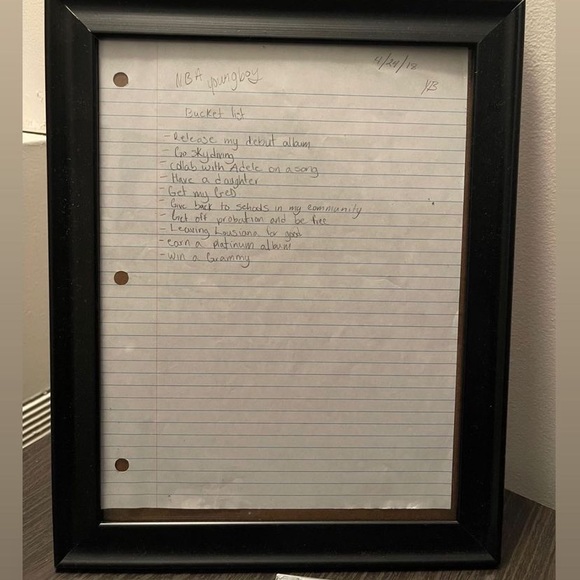 4/24/18
NBA youngboy
YB
Bucket list
- Release my debut album
- Go skydiving
- collab with Adele on a song
- Have a daughter
- Get my GED
- Give back to schools in my community
- Get off probation and be free
- Leaving Lousiana for good
- earn a platinum album
- win a Grammy